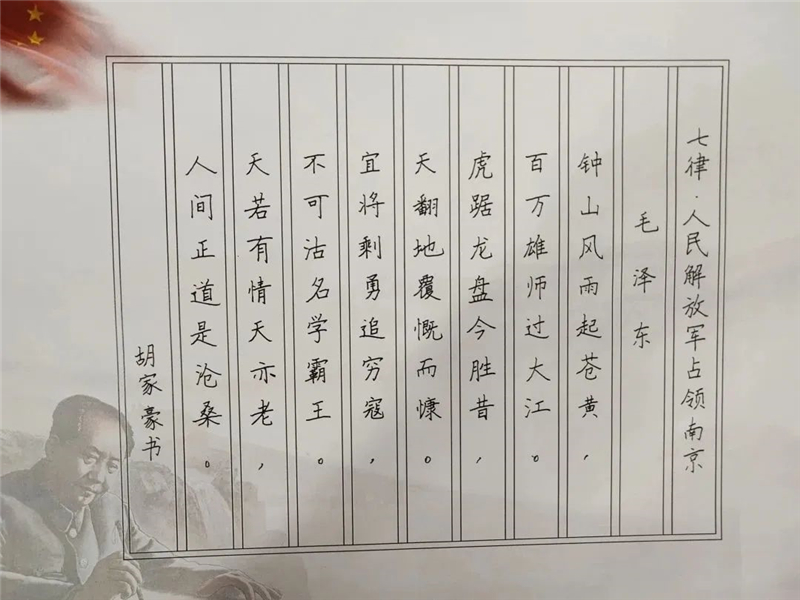 七律·人民解放军占领南京
毛泽东
钟山风雨起苍黄，
百万雄师过大江。
虎踞龙盘今胜昔，
天翻地覆慨而慷。
宜将剩勇追穷寇，
不可沽名学霸王。
天若有情天亦老，
人间正道是沧桑。
胡家豪书